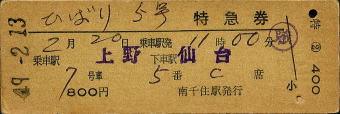 ひばり 5号 特急券
49-2.13
2月20日 乗車駅発 11時00分
乗車駅 上野 下車駅 仙台
7号車 5番 C席
800円 南千住駅発行
小
特 ② 400